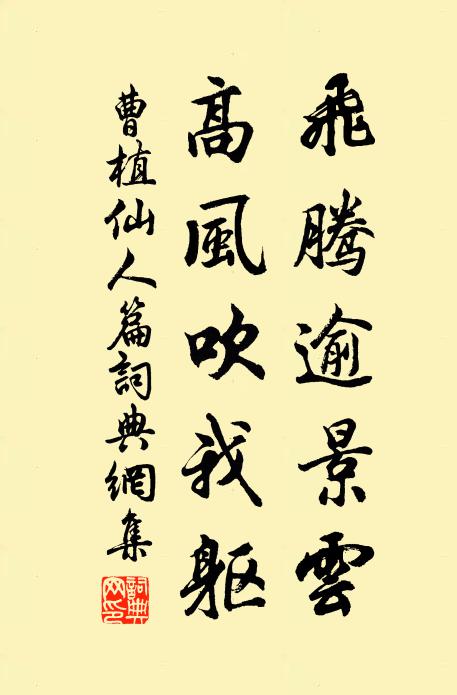 飛騰逾景雲
高風吹我軀
曹植仙人篇詞典網集
詞典網印